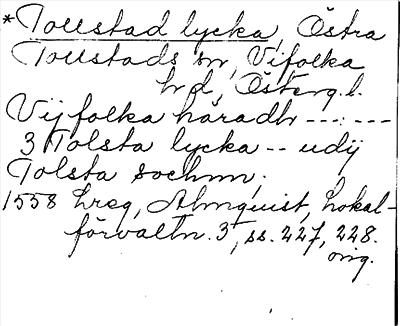 *Tollstad lycka, Östra
Tollstads sn, Vifolka
hd, Österg. l.
Vijfolka häradh ------
3 Tolsta lycka -- udij
Tolsta sochnn,
1558 Lreg, Almquist, Lokal-
förvaltn. 3, ss. 227, 228.
orig.